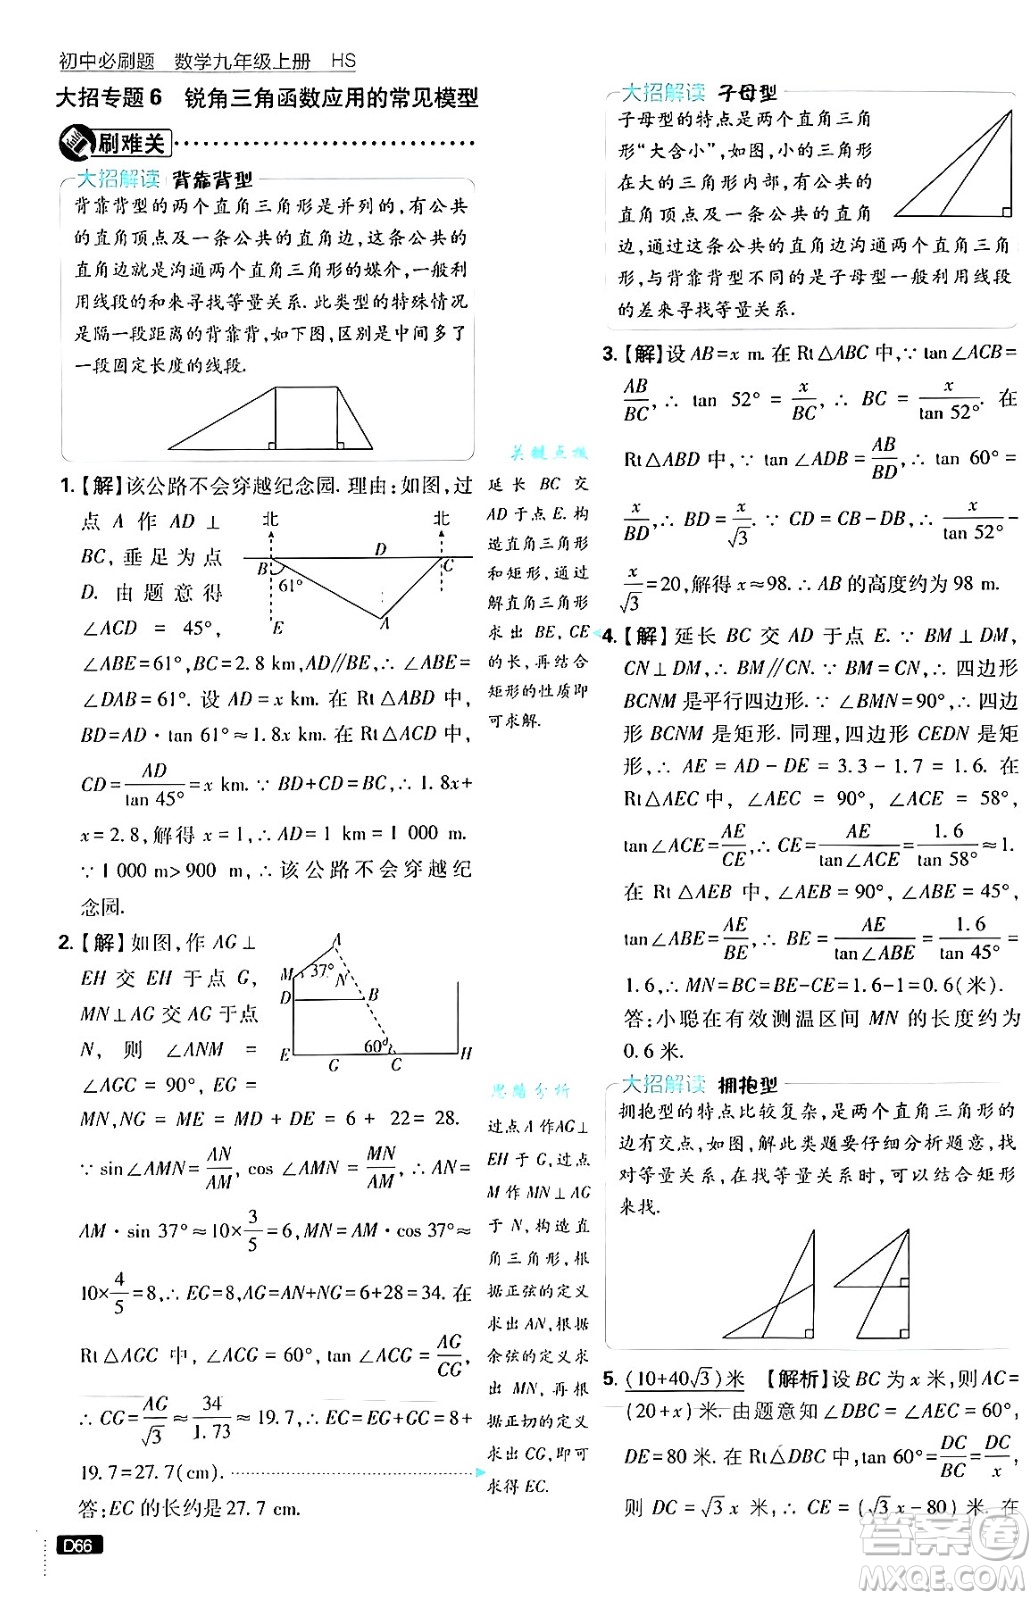 初中必刷题 数学九年级上册 HS
大招专题6 锐角三角函数应用的常见模型
刷难关
大招解读 背靠背型
背靠背型的两个直角三角形是并列的,有公共
的直角顶点及一条公共的直角边,这条公共的
直角边就是沟通两个直角三角形的媒介,一般利
用线段的和来寻找等量关系.此类型的特殊情况
是隔一段距离的背靠背,如下图,区别是中间多了
一段固定长度的线段.
1.【解】该公路不会穿越纪念园.理由:如图,过
点 A 作 AD⊥
BC,垂足为点
D. 由题意得
∠ACD = 45°,
北
北
B
61°
D
C
E
A
∠ABE=61°,BC=2.8 km,AD∥BE,∴∠ABE=
∠DAB=61°.设 AD=x km.在 Rt△ABD 中,
BD=AD·tan 61°≈1.8x km.在 Rt△ACD 中,
CD=AD/tan 45°=x km.∵BD+CD=BC,∴1.8x+
x=2.8,解得 x=1,∴AD=1 km=1 000 m.
∵1 000 m>900 m,∴该公路不会穿越纪
念园.
2.【解】如图,作 AG⊥
EH 交 EH 于点 G,
MN⊥AG 交 AG 于点
N, 则 ∠ANM =
∠AGC = 90°,EG =
A
M
37°
N
D
B
60°
E
G
C
H
MN,NG = ME = MD + DE = 6 + 22 = 28.
∵sin∠AMN=AN/AM,cos∠AMN=MN/AM,∴AN=
AM·sin 37°≈10×3/5=6,MN=AM·cos 37°≈
10×4/5=8,∴EG=8,AG=AN+NG=6+28=34.在
Rt△AGC 中,∠ACG=60°,tan∠ACG=AG/CG,
∴CG=AG/√3≈34/1.73≈19.7,∴EC=EG+CG=8+
19.7=27.7(cm).
答:EC 的长约是 27.7 cm.
D66
关键点拨
延长 BC 交
AD 于点 E.构
造直角三角形
和矩形,通过
解直角三角形
求出 BE,CE
的长,再结合
矩形的性质即
可求解.
思路分析
过点 A 作 AG⊥
EH 于 G,过点
M 作 MN⊥AG
于 N,构造直
角三角形,根
据正弦的定义
求出 AN,根据
余弦的定义求
出 MN,再根
据正切的定义
求出 CG,即可
求得 EC.
大招解读 子母型
子母型的特点是两个直角三角
形“大含小”,如图,小的三角形
在大的三角形内部,有公共的
直角顶点及一条公共的直角边,这条公共的直角
边就是沟通两个直角三角形的媒介,与背靠背型
不同的是子母型一般利用线段的差来寻找等量关系.
3.【解】设 AB=x m.在 Rt△ABC 中,∵tan∠ACB=
AB/BC,∴tan 52°=x/BC,∴BC=x/tan 52°.在
Rt△ABD 中,∵tan∠ADB=AB/BD,∴tan 60°=
x/BD,∴BD=x/√3.∵CD=CB-DB,∴x/tan 52°-
x/√3=20,解得 x≈98.∴AB 的高度约为 98 m.
4.【解】延长 BC 交 AD 于点 E.∵BM⊥DM,
CN⊥DM,∴BM∥CN.∵BM=CN,∴四边形
BCNM 是平行四边形.∵∠BMN=90°,∴四边
形 BCNM 是矩形.同理,四边形 CEDN 是矩
形,∴AE = AD - DE = 3.3 - 1.7 = 1.6.在
Rt△AEC 中,∠AEC = 90°,∠ACE = 58°,
tan∠ACE=AE/CE,∴CE=AE/tan∠ACE=1.6/tan 58°≈1.
在 Rt△AEB 中,∠AEB=90°,∠ABE=45°,
tan∠ABE=AE/BE,∴BE=AE/tan∠ABE=1.6/tan 45°=
1.6,∴MN=BC=BE-CE=1.6-1=0.6(米).
答:小聪在有效测温区间 MN 的长度约为
0.6 米.
大招解读 拥抱型
拥抱型的特点比较复杂,是两个直角三角形的
边有交点,如图,解此类题要仔细分析题意,找
对等量关系,在找等量关系时,可以结合矩形
来找.
5.(10+40√3)米 【解析】设 BC 为 x 米,则 AC=
(20+x)米.由题意知∠DBC=∠AEC=60°,
DE=80 米.在 Rt△DBC 中,tan 60°=DC/BC=DC/x,
则 DC=√3x 米,∴CE=(√3x-80)米.在
答案圈